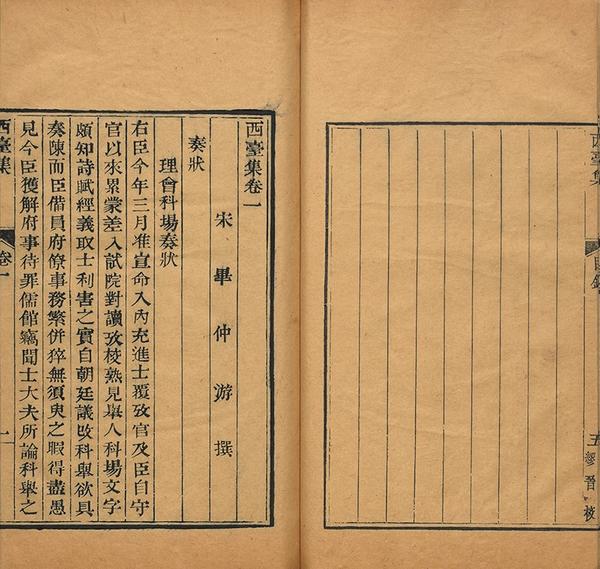 西臺集
目錄
五
繆晉 校
西臺集卷一
宋 畢 仲 游 撰
奏狀
理會科場奏狀
右臣今年三月准宣命入內充進士覆攷官及臣自守
官以來累蒙差入試院對讀攷校熟見舉人科場文字
頗知詩賦經義取士利害之實自朝廷議攺科舉欲具
奏陳而臣備員府僚事務繁併猝無須臾之暇得盡愚
見今臣獲解府事待罪儒館竊聞士大夫所論科舉之
西臺集
卷一
一